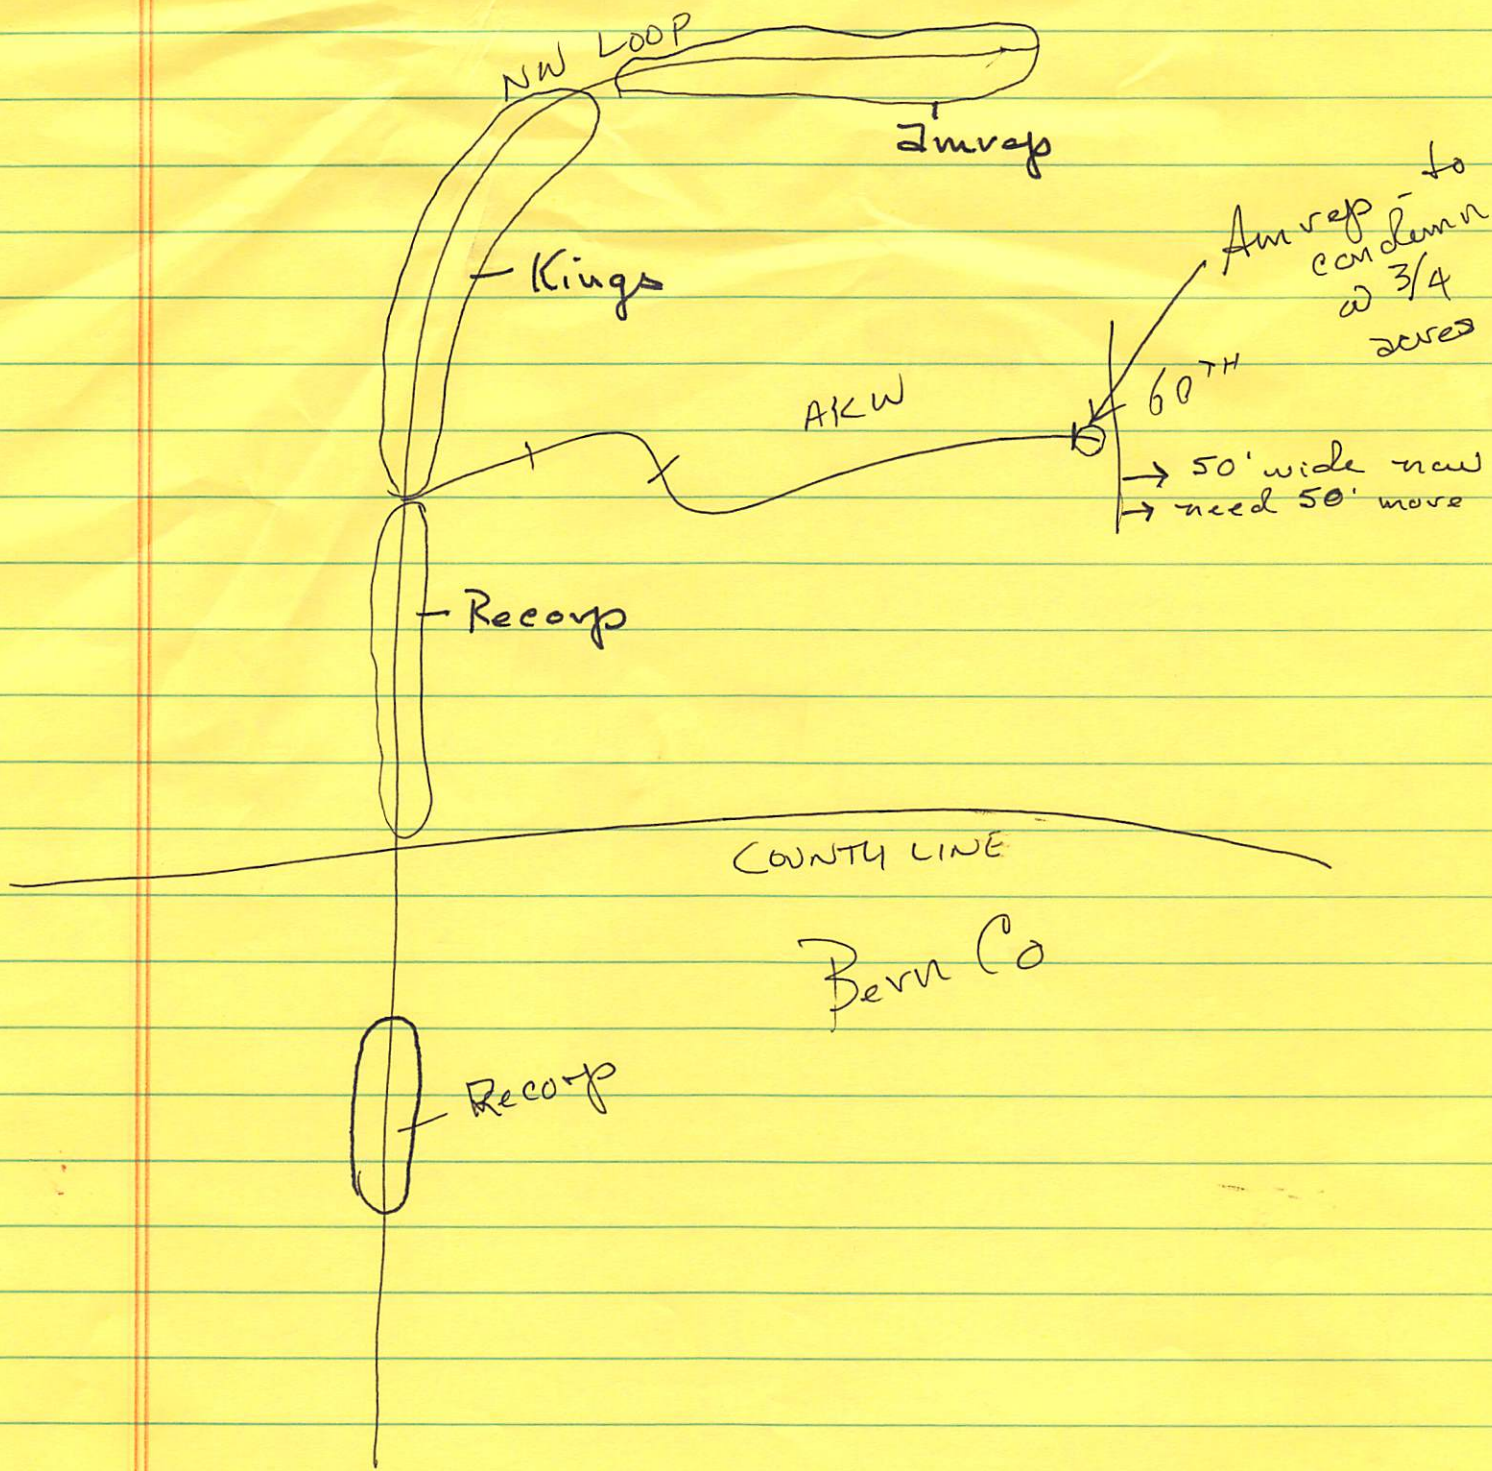 NW LOOP
Amrep
Amrep - to
condemn
@ 3/4
acres
Kings
60TH
AKW
→ 50' wide now
→ need 50' more
Recorp
COUNTY LINE
Bern Co
Recorp